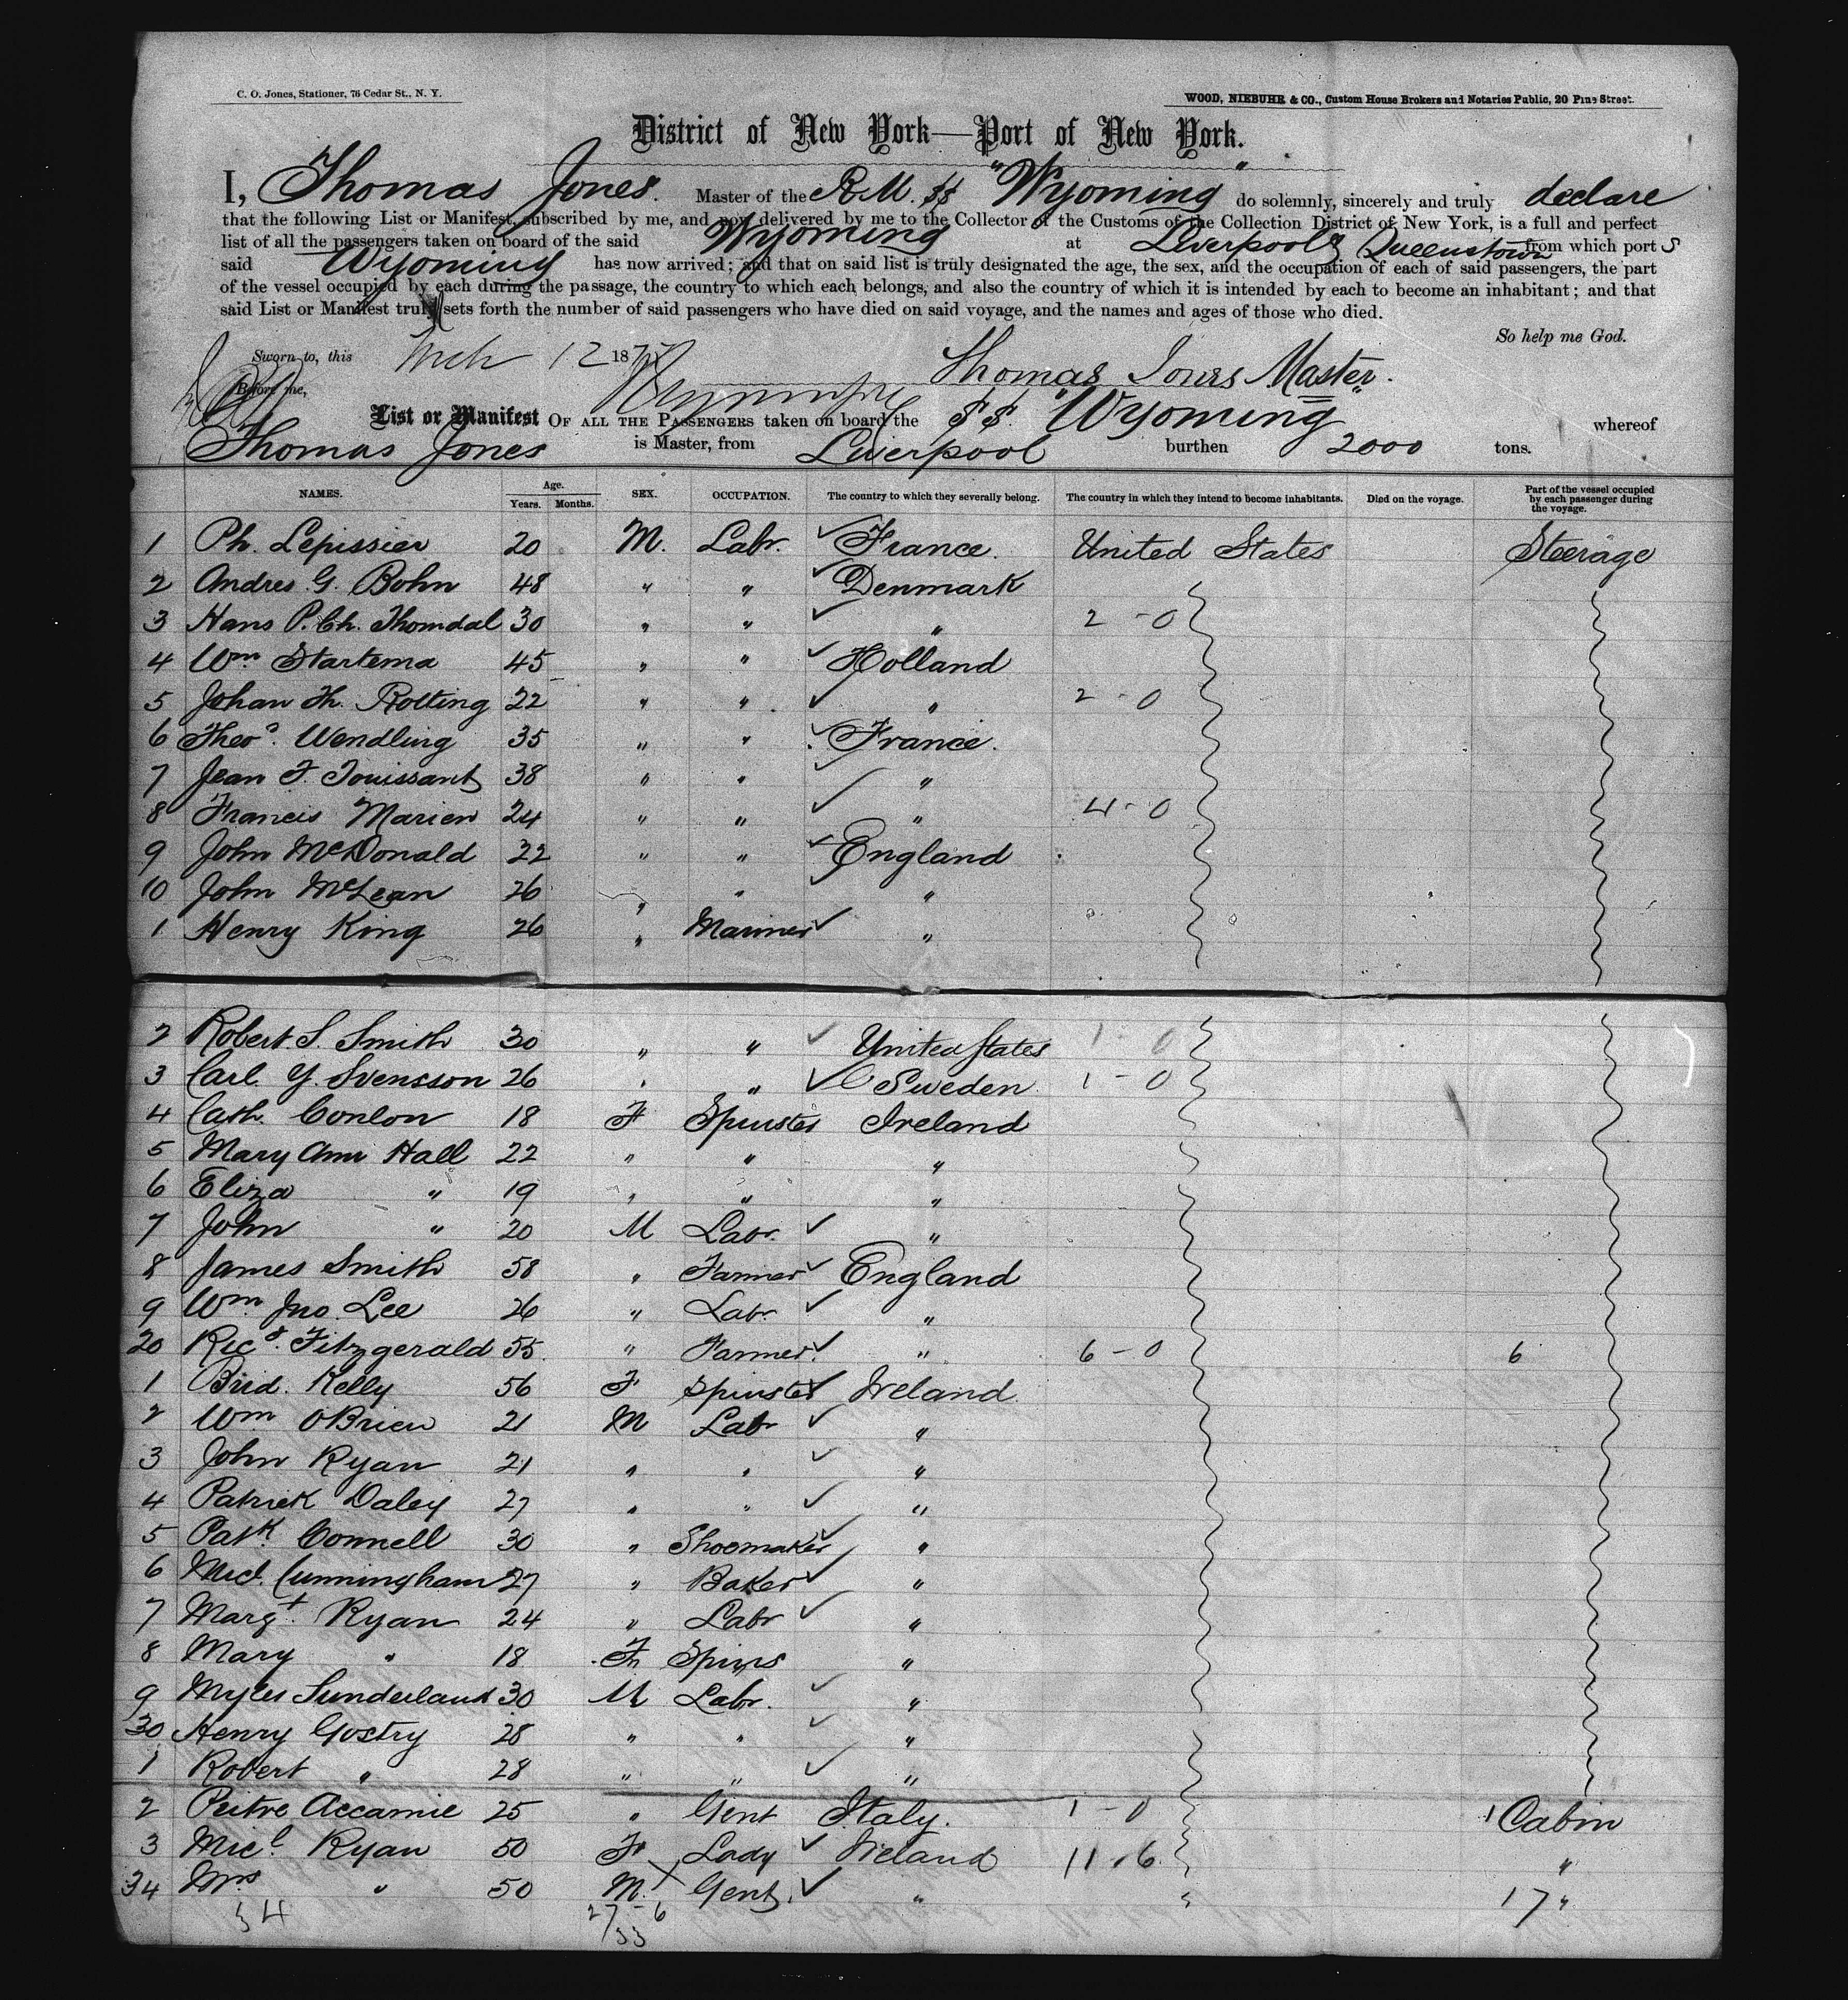 C. O. Jones, Stationer, 76 Cedar St., N. Y.
WOOD, NIEBUHR & CO., Custom House Brokers and Notaries Public, 20 Pine Street.
District of New York—Port of New York.
I, Thomas Jones. Master of the R.M. SS "Wyoming" do solemnly, sincerely and truly declare
that the following List or Manifest, subscribed by me, and now delivered by me to the Collector of the Customs of the Collection District of New York, is a full and perfect
list of all the passengers taken on board of the said Wyoming at Liverpool & Queenstown from which port s
said Wyoming has now arrived; and that on said list is truly designated the age, the sex, and the occupation of each of said passengers, the part
of the vessel occupied by each during the passage, the country to which each belongs, and also the country of which it is intended by each to become an inhabitant; and that
said List or Manifest truly sets forth the number of said passengers who have died on said voyage, and the names and ages of those who died.
So help me God.
Sworn to, this Mch 12 187
Thomas Jones Master.
Before me,
List or Manifest OF ALL THE PASSENGERS taken on board the SS. "Wyoming" whereof
Thomas Jones is Master, from Liverpool burthen 2000 tons.
NAMES. Age. Years. Months. SEX. OCCUPATION. The country to which they severally belong. The country in which they intend to become inhabitants. Died on the voyage. Part of the vessel occupied by each passenger during the voyage.
1 Ph. Lepissier 20 M. Labr. ✓ France. United States Steerage
2 Andres G. Bohn 48 " " ✓ Denmark
3 Hans P. Ch. Thomdal 30 " " ✓ " 2 - 0
4 Wm Startema 45 " " ✓ Holland
5 Johan Th. Rotting 22 " " ✓ " 2 - 0
6 Theos. Wendling 35 " " ✓ France.
7 Jean F. Touissant 38 " " ✓ "
8 Francis Marien 24 " " ✓ " 4 - 0
9 John McDonald 22 " " ✓ England
10 John McLean 26 " " ✓ "
1 Henry King 26 " Mariner ✓ "
2 Robert S. Smith 30 " " ✓ United States 1 - 0
3 Carl Y. Svensson 26 " " ✓ Sweden 1 - 0
4 Cath. Conlon 18 F Spinster Ireland
5 Mary Ann Hall 22 " " "
6 Eliza " 19 " " "
7 John " 20 M Labr. ✓ "
8 James Smith 58 " Farmer ✓ England
9 Wm Jno. Lee 26 " Labr. ✓ "
20 Ricd. Fitzgerald 55 " Farmer. ✓ " 6 - 0 6
1 Brid. Kelly 56 F Spinster ✓ Ireland.
2 Wm OBrien 21 M Labr ✓ "
3 John Ryan 21 " " ✓ "
4 Patrick Daley 27 " " ✓ "
5 Patk. Connell 30 " Shoemaker ✓ "
6 Micl. Cunningham 27 " Baker ✓ "
7 Margt. Ryan 24 " Labr ✓ "
8 Mary " 18 F Spins "
9 Myles Sunderland 30 M Labr. ✓ "
30 Henry Gostry 28 " " ✓ "
1 Robert " 28 " " ✓ "
2 Peitre Accamie 25 " Gent Italy. 1 - 0 1 Cabin
3 Micl Ryan 50 F Lady ✓ Ireland 11 . 6 "
34 Mrs " 50 M. Gent. ✓ " 17 "
34 27 - 6
33